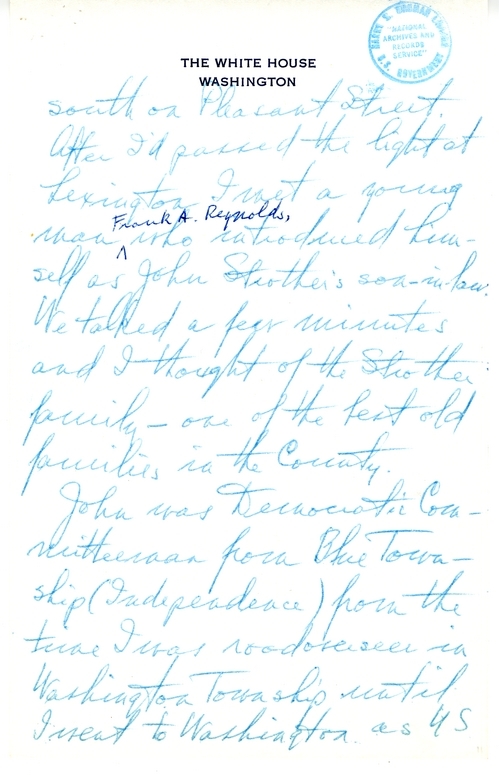 HARRY S. TRUMAN LIBRARY
"NATIONAL
ARCHIVES AND
RECORDS
SERVICE"
U.S. GOVERNMENT
THE WHITE HOUSE
WASHINGTON
south on Pleasant Street.
After I'd passed the light at
Lexington I met a young
Frank A. Reynolds,
man ^ who introduced him-
self as John Strother's son-in-law.
We talked a few minutes
and I thought of the Strother
family - one of the best old
families in the County.
John was Democratic Com-
mitteeman from Blue Town-
ship (Independence) from the
time I was roadoverseer in
Washington Township until
I went to Washington as US